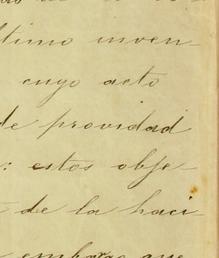 ltimo inven-
cuyo acto
de providad
: estos obje-
de la haci-
embargo que